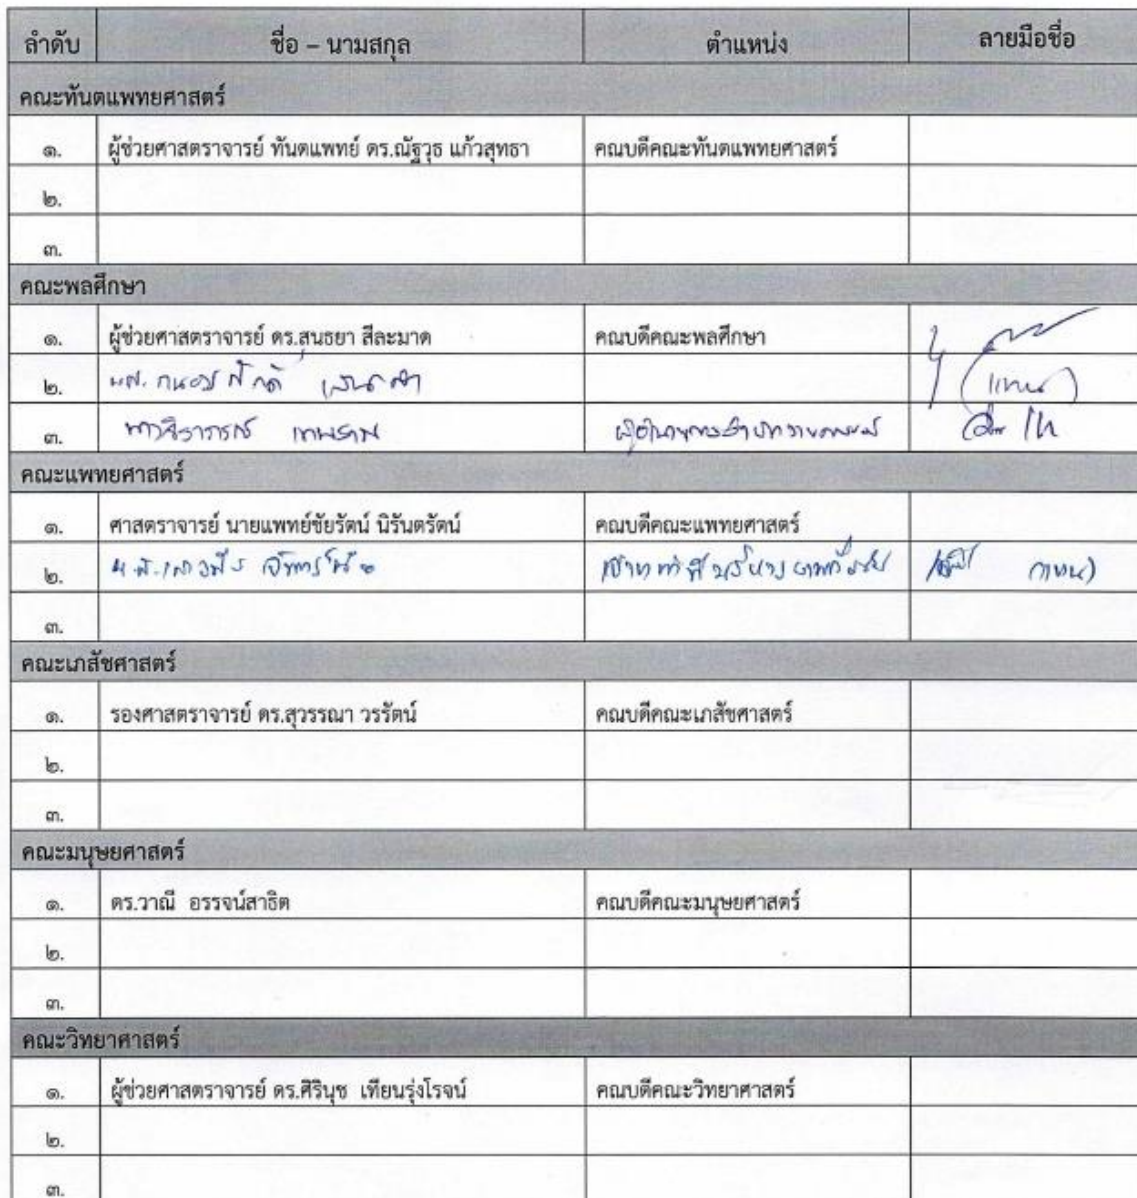 ลำดับ ชื่อ – นามสกุล ตำแหน่ง ลายมือชื่อ
คณะทันตแพทยศาสตร์
๑. ผู้ช่วยศาสตราจารย์ ทันตแพทย์ ดร.ณัฐวุธ แก้วสุทธา คณบดีคณะทันตแพทยศาสตร์
๒.
๓.
คณะพลศึกษา
๑. ผู้ช่วยศาสตราจารย์ ดร.สนธยา สีละมาด คณบดีคณะพลศึกษา
๒. ผศ. (แทน)
๓.
คณะแพทยศาสตร์
๑. ศาสตราจารย์ นายแพทย์ชัยรัตน์ นิรันตรัตน์ คณบดีคณะแพทยศาสตร์
๒. แทน)
๓.
คณะเภสัชศาสตร์
๑. รองศาสตราจารย์ ดร.สุวรรณา วรรัตน์ คณบดีคณะเภสัชศาสตร์
๒.
๓.
คณะมนุษยศาสตร์
๑. ดร.วาณี อรรจน์สาธิต คณบดีคณะมนุษยศาสตร์
๒.
๓.
คณะวิทยาศาสตร์
๑. ผู้ช่วยศาสตราจารย์ ดร.ศิรินุช เทียนรุ่งโรจน์ คณบดีคณะวิทยาศาสตร์
๒.
๓.